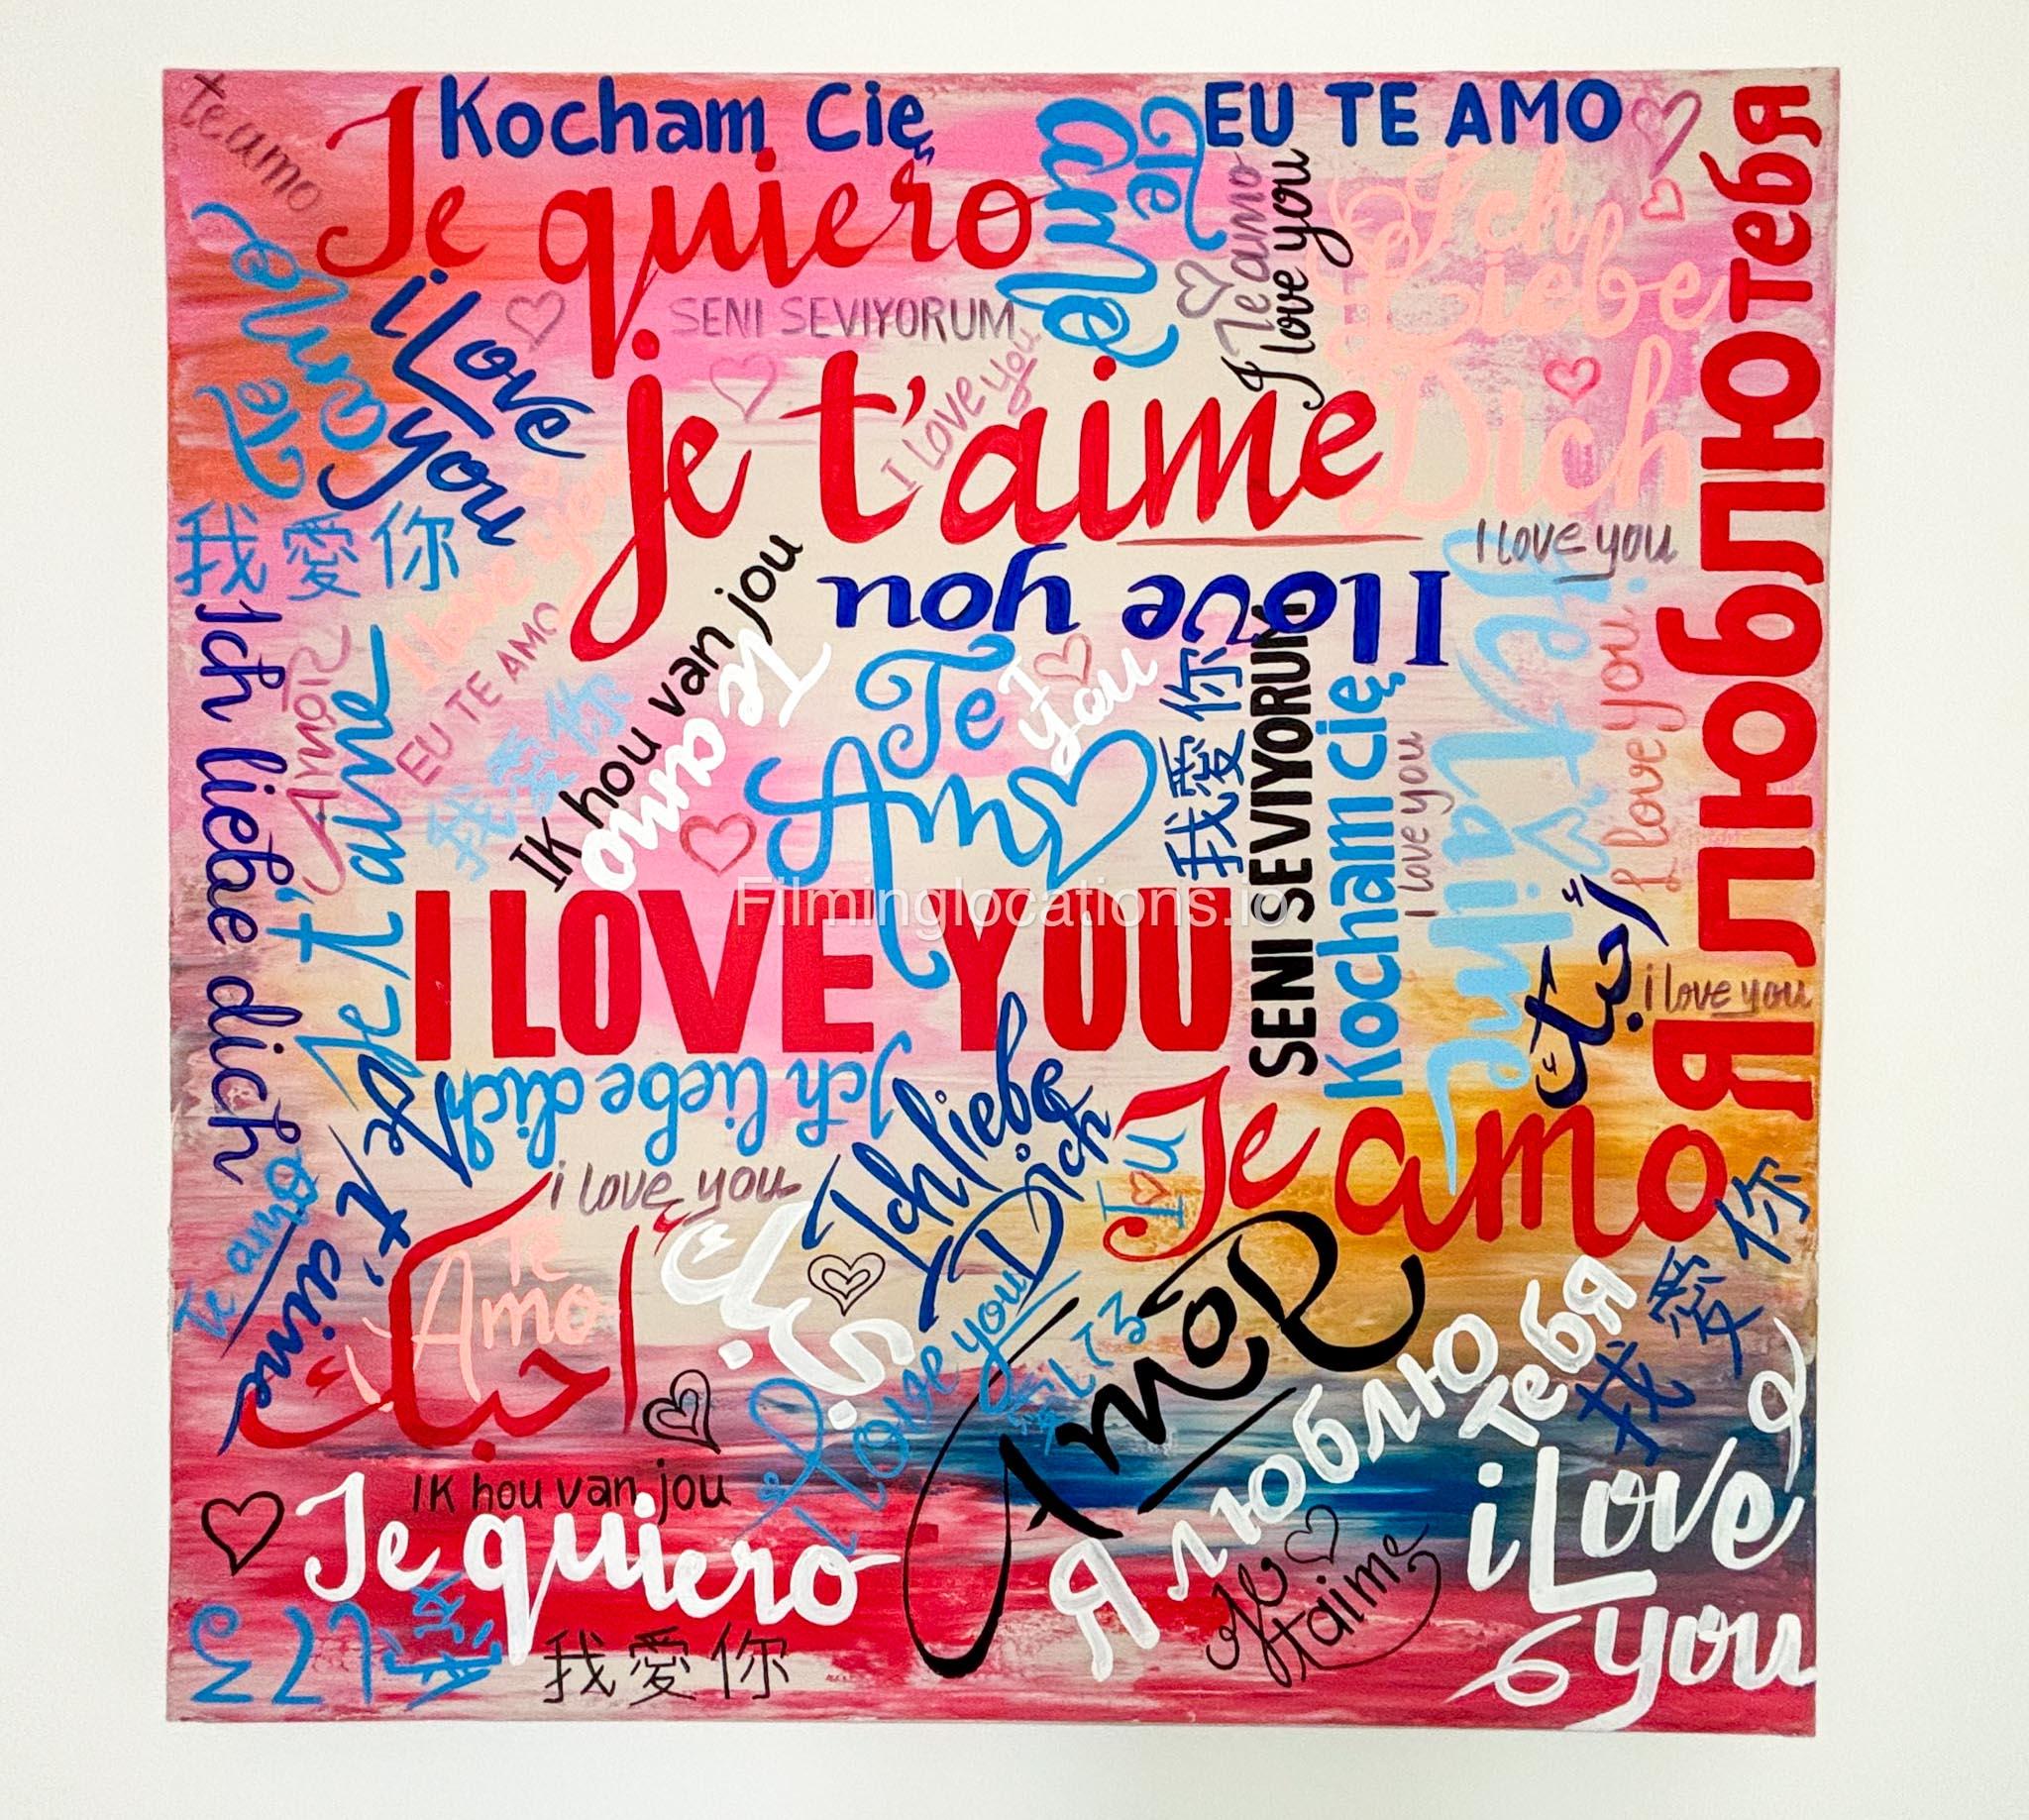 te amo
Kocham Cię
EU TE AMO
Te quiero
Te amo
Te amo
I love you
Ich
Liebe
Dich
Я люблю тебя
Te amo
i Love
you
SENI SEVIYORUM
I LOVE you
je t'aime
I love you
我愛你
I love you
EU TE AMO
Ik hou van jou
I love you
Te amo
Te
Amo
I
you
我愛你
SENI SEVIYORUM
Kocham cię
I love you
Je t'aime
I love you
Ich liebe dich
Amor
Je t'aime
我愛你
Filminglocations.io
I LOVE YOU
أحبك
i love you
Ich liebe dich
Je t'aime
Ich liebe
Dich
I u
Te amo
i love you
Te amo
أحبك
Te
Amo
أحبك
I love you
愛してる
Amor
Я люблю
тебя
我愛你
Ik hou van jou
Te quiero
愛してる
我愛你
Je
t'aime
i Love
you